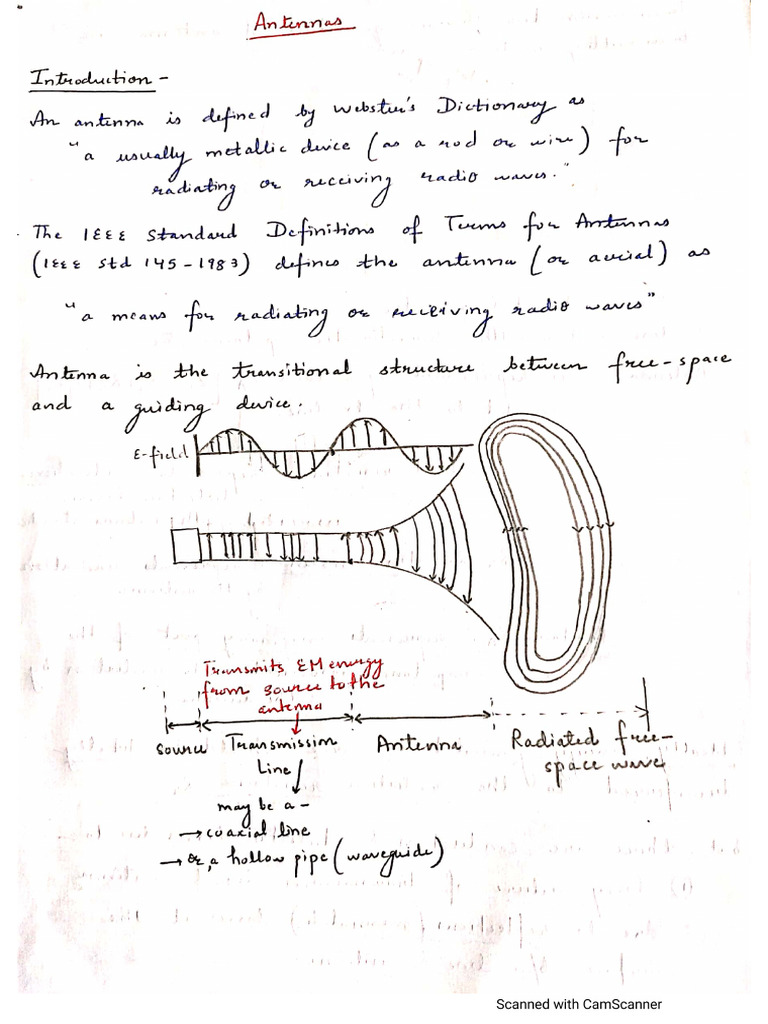 Antennas
Introduction -
An antenna is defined by Webster's Dictionary as
"a usually metallic device (as a rod or wire) for
radiating or receiving radio waves."
The IEEE Standard Definitions of Terms for Antennas
(IEEE Std 145-1983) defines the antenna (or aerial) as
"a means for radiating or receiving radio waves"
Antenna is the transitional structure between free-space
and a guiding device.
E-field
Transmits EM energy
from source to the
antenna
Source Transmission Antenna Radiated free-
Line space wave
may be a -
→ coaxial line
→ or, a hollow pipe (waveguide)
Scanned with CamScanner